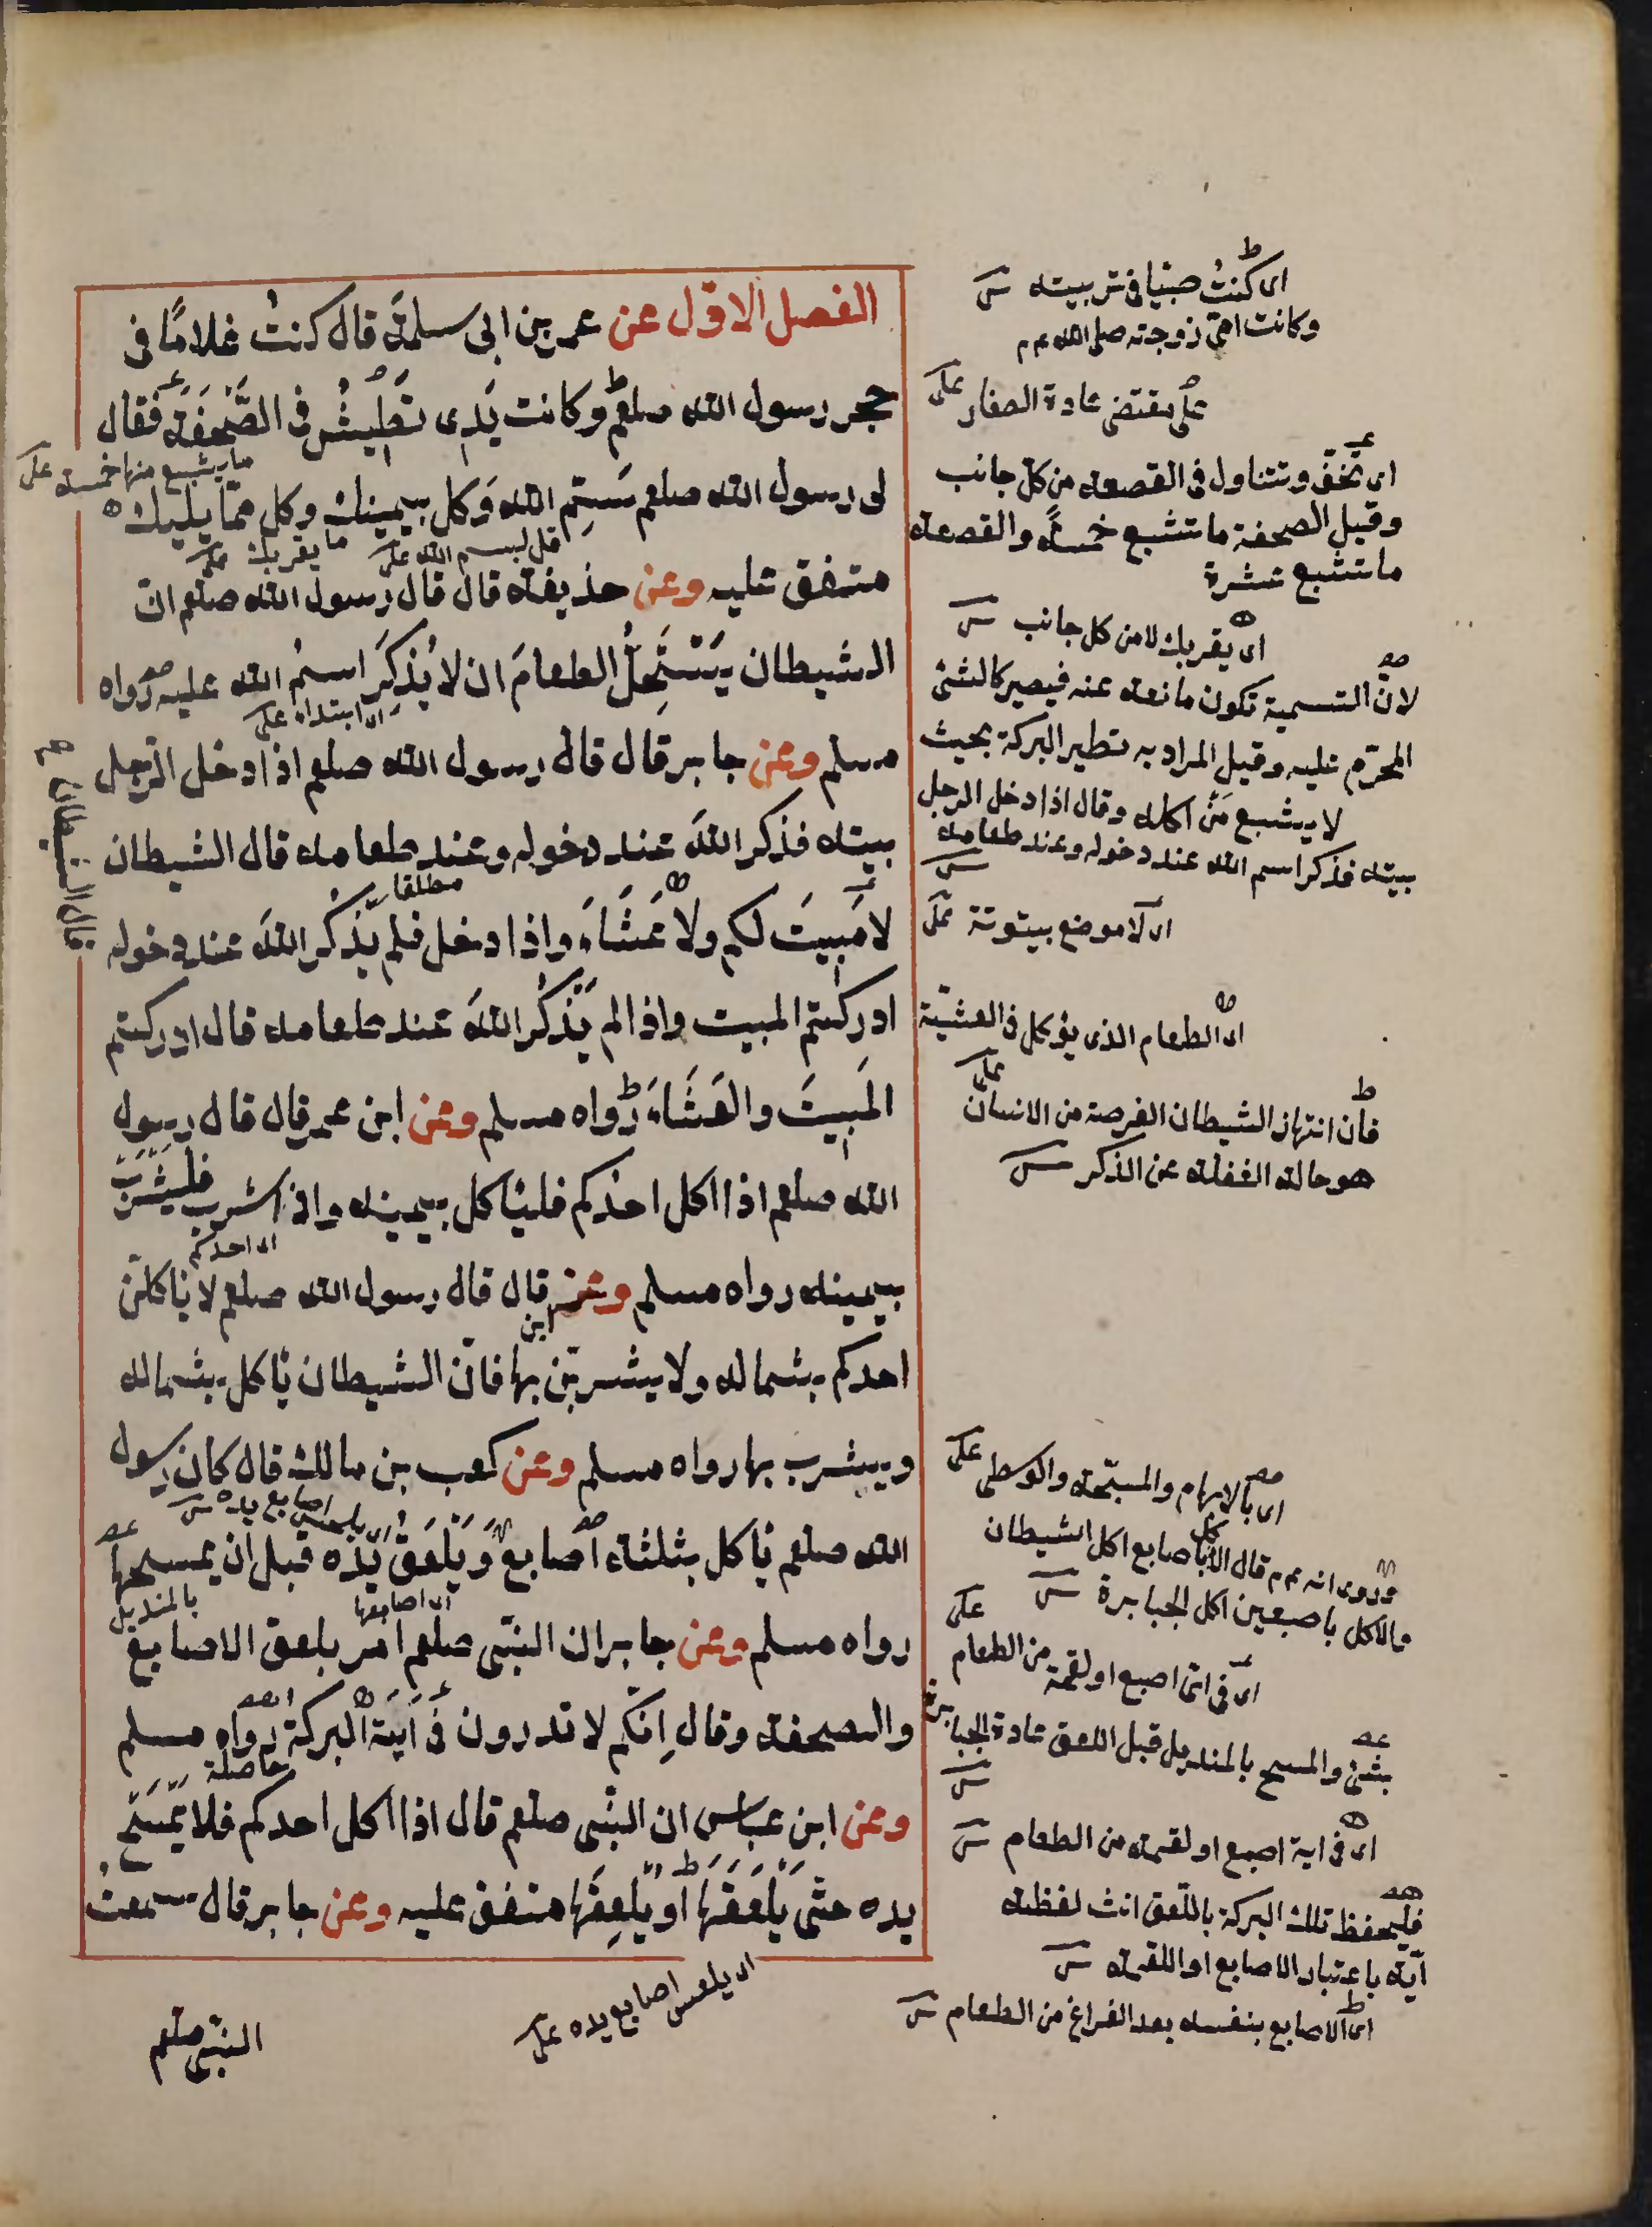 الفصل الاوّل عن عمر بن ابى سلمة قال كنتُ غلامًا فى
حجر رسول الله صلعم وكانت يَدِى تَطِيشُ فى الصَّحْفَة فقال
لى رسول الله صلعم سَمِّ الله وَكل بيمينك وكل ممّا يليك
متفق عليه وعن حذيفة قال قال رسول الله صلعم انّ
الشيطان يَسْتَحِلُّ الطعامَ ان لا يُذكَرَ اسمُ الله عليه رواه
مسلم وعن جابر قال قال رسول الله صلعم اذا دخل الرّجل
بيته فذكر اللهَ عند دخوله وعند طعامه قال الشيطان
لا مَبِيتَ لكم ولا عَشَاءَ واذا دخل فلم يَذكُر اللهَ عند دخوله
قال الشيطان
ادركتم المبيت واذا لم يَذكُر اللهَ عند طعامه قال ادركتم
المَبِيتَ والعَشَاءَ رواه مسلم وعن ابن عمر قال قال رسول
الله صلعم اذا اكل احدكم فليأكل بيمينه واذا شرب فليَشْرَبْ
بيمينه رواه مسلم وعن قال قال رسول الله صلعم لا يأكلنّ
احدكم بشماله ولا يشربَنّ بها فانّ الشيطان يأكل بشماله
ويشرب بها رواه مسلم وعن كعب بن مالك قال كان رسول
الله صلعم يأكل بثلثة اصابع وَيَلْعَقُ يَدَه قبل ان يمسحها
رواه مسلم وعن جابر ان النبّى صلعم امر بلعق الاصابع
والصحفة وقال اِنّكم لا تدرون فى اَيَّة البركة رواه مسلم
وعن ابن عباس ان النبّى صلعم قال اذا اكل احدكم فلا يَمْسَحْ
يده حتّى يَلْعَقَها او يُلْعِقَها متفق عليه وعن جابر قال سمعتُ
النبّى صلعم
اى كنتُ صبيّا فى تربيته
وكانت امّى زوجته صلى الله عم
على مقتضى عادة الصغار
اى تخفّ وتتناول فى القصعة من كل جانب
وقيل الصحفة ما تشبع خمسة والقصعة
ما تشبع عشرة
اى يقربك لا من كل جانب
لانّ التسمية تكون مانعة عنه فيصير كالشئ
المحرّم عليه وقيل المراد به تطير البركة بحيث
لا يشبع مَنْ اكله وقال اذا دخل الرجل
بيته فذكر اسم الله عند دخوله وعند طعامه
اى لا موضع بيتوتة
اى الطعام الذى يؤكل فى العشيّة
فان انتهاز الشيطان الفرصة من الانسان
هو حالة الغفلة عن الذكر
اى بالابهام والمسبّحة والوسطى
وروى انه عم قال الاكل باصابع اكل الشيطان
والاكل باصبعين اكل الجبابرة
اى فى اىّ اصبع او لقمة من الطعام
بشئ والمسح بالمنديل قبل اللعق عادة الجبابرة
اى فى اية اصبع او لقمة من الطعام
فليحفظ تلك البركة باللّعق انث لفظة
آيّة باعتبار الاصابع او اللقمة
اى الاصابع بنفسه بعد الفراغ من الطعام
ما يشبع منها خمسة
قل بسم الله
ما يقربك
اى ابتداء
مطلقا
اى احدكم
ابن
اى يلحس اصابع يده
بالمنديل
اى اصابعها
حاصلة
اى يلعس اصابع يده